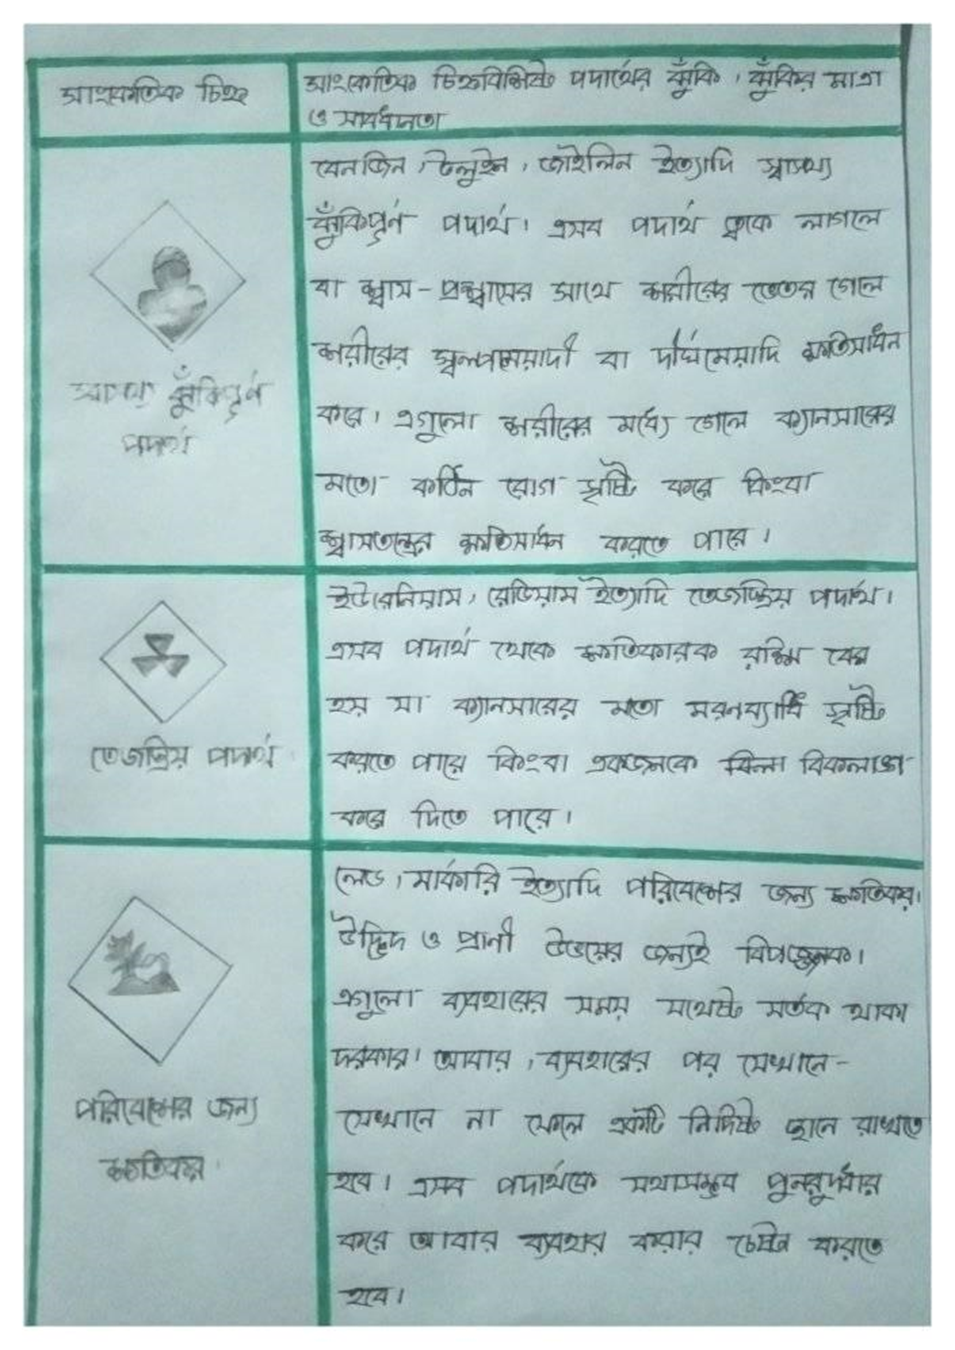 সাংকেতিক চিহ্ন
সাংকেতিক চিহ্নবিশিষ্ট পদার্থের ঝুঁকি, ঝুঁকির মাত্রা
ও সাবধানতা
স্বাস্থ্য ঝুঁকিপূর্ণ
পদার্থ
বেনজিন, টলুইন, জাইলিন ইত্যাদি স্বাস্থ্য
ঝুঁকিপূর্ণ পদার্থ। এসব পদার্থ ত্বকে লাগলে
বা শ্বাস-প্রশ্বাসের সাথে শরীরের ভেতর গেলে
শরীরের স্বল্পমেয়াদী বা দীর্ঘমেয়াদি ক্ষতিসাধন
করে। এগুলো শরীরের মধ্যে গেলে ক্যানসারের
মতো কঠিন রোগ সৃষ্টি করে কিংবা
শ্বাসতন্ত্রের ক্ষতিসাধন করতে পারে।
তেজস্ক্রিয় পদার্থ
ইউরেনিয়াম, রেডিয়াম ইত্যাদি তেজস্ক্রিয় পদার্থ।
এসব পদার্থ থেকে ক্ষতিকারক রশ্মি বের
হয় যা ক্যানসারের মতো মরনব্যাধি সৃষ্টি
করতে পারে কিংবা একজনকে বিকলাঙ্গ
করে দিতে পারে।
পরিবেশের জন্য
ক্ষতিকর।
লেড, মার্কারি ইত্যাদি পরিবেশের জন্য ক্ষতিকর।
উদ্ভিদ ও প্রাণী উভয়ের জন্যই বিপজ্জনক।
এগুলো ব্যবহারের সময় যথেষ্ট সর্তক থাকা
দরকার। আবার, ব্যবহারের পর যেখানে-
সেখানে না ফেলে একটি নির্দিষ্ট স্থানে রাখতে
হবে। এসব পদার্থকে যথাসম্ভব পুনরুদ্ধার
করে আবার ব্যবহার করার চেষ্টা করতে
হবে।